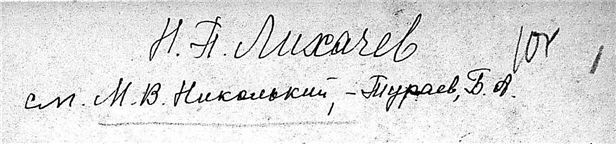 Н. П. Лихачев 10г
см. М. В. Никольский, - Тураев, Б. А.